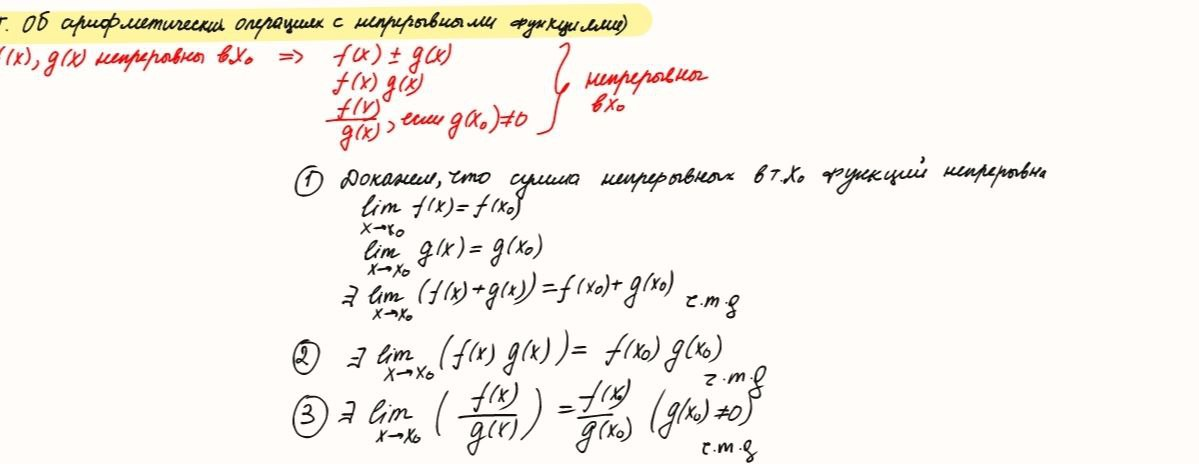 т. Об арифметических операциях с непрерывными функциями)
f(x), g(x) непрерывны в x₀ => f(x) ± g(x)
f(x) g(x)
f(x)/g(x), если g(x₀)≠0
непрерывны
в x₀
① Докажем, что сумма непрерывных в т. x₀ функций непрерывна
lim f(x) = f(x₀)
x→x₀
lim g(x) = g(x₀)
x→x₀
∃ lim (f(x)+g(x)) = f(x₀)+g(x₀) ч.т.д
x→x₀
② ∃ lim (f(x) g(x)) = f(x₀) g(x₀)
x→x₀ ч.т.д
③ ∃ lim (f(x)/g(x)) = f(x₀)/g(x₀) (g(x₀)≠0)
x→x₀ ч.т.д